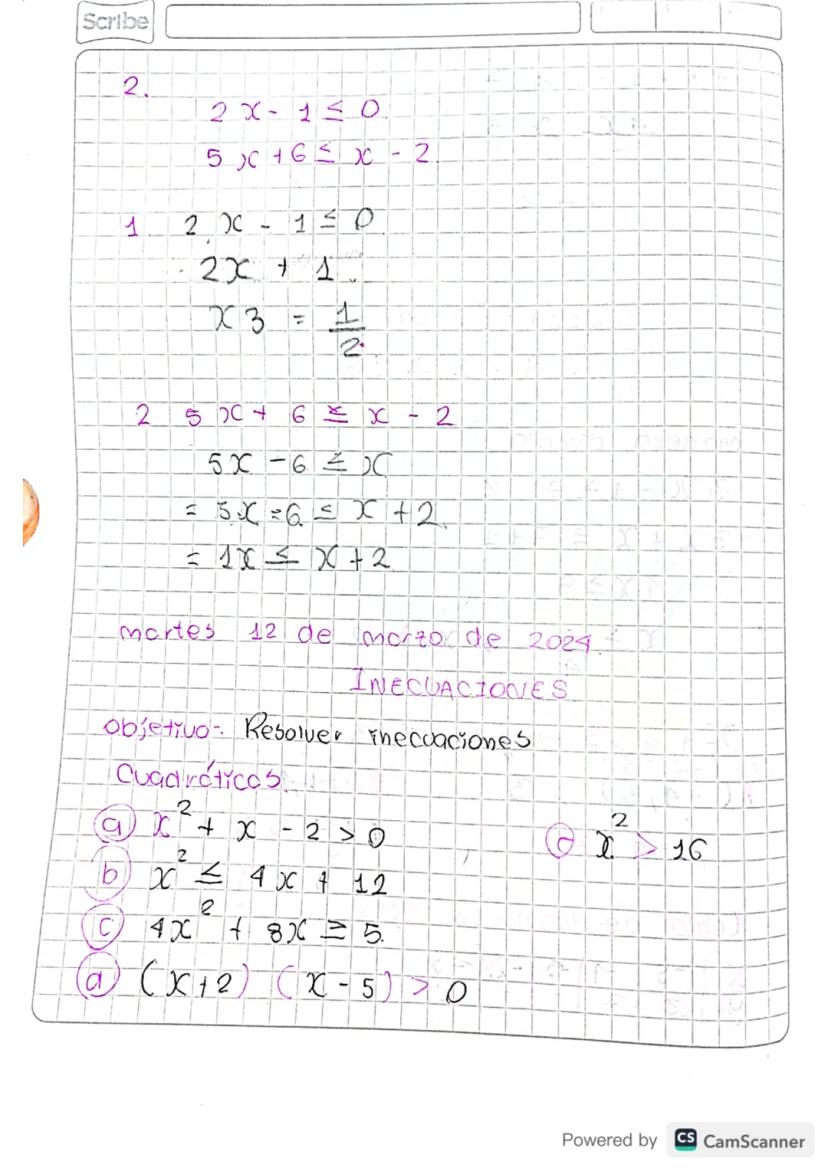 Scribe
2.
2x - 1 ≤ 0
5x + 6 ≤ x - 2
1 2x - 1 ≤ 0
2x + 1
x 3 = 1/2
2 5x + 6 ≤ x - 2
5x - 6 ≤ x
= 5x - 6 ≤ x + 2
= 1x ≤ x + 2
martes 12 de marzo de 2024.
INECUACIONES
objetivo-. Resolver inecuaciones
cuadráticas.
a) x² + x - 2 > 0
e) x² > 16
b) x² ≤ 4x + 12
c) 4x² + 8x ≥ 5.
d) (x+2) (x - 5) > 0
Powered by CS CamScanner